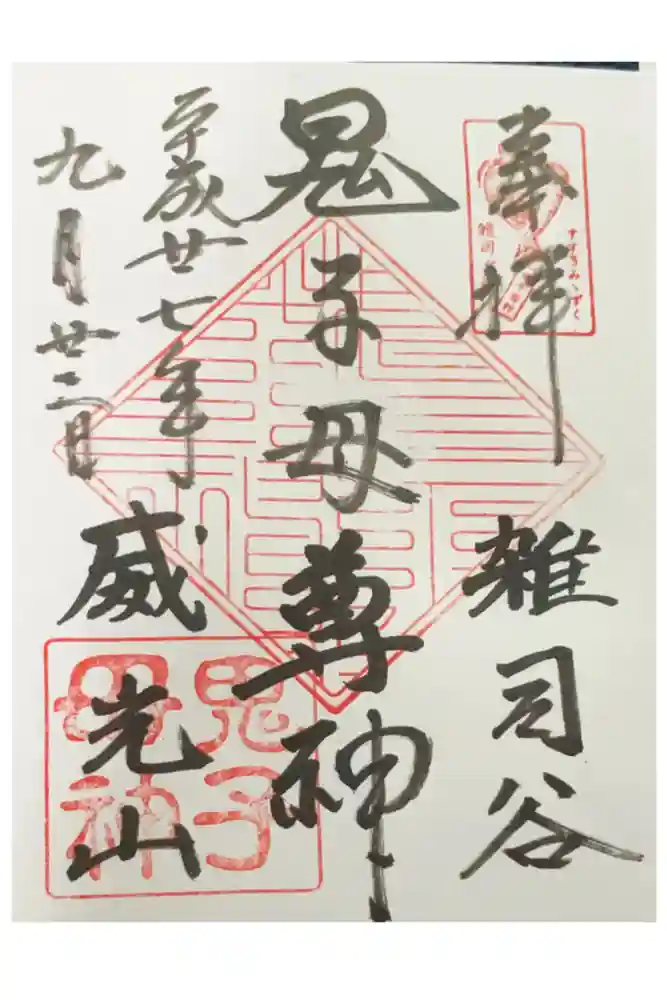 奉拝
すすきみゝずく
雑司谷
鬼子母尊神
平成廿七年
九月廿二日
威光山
鬼子
母神